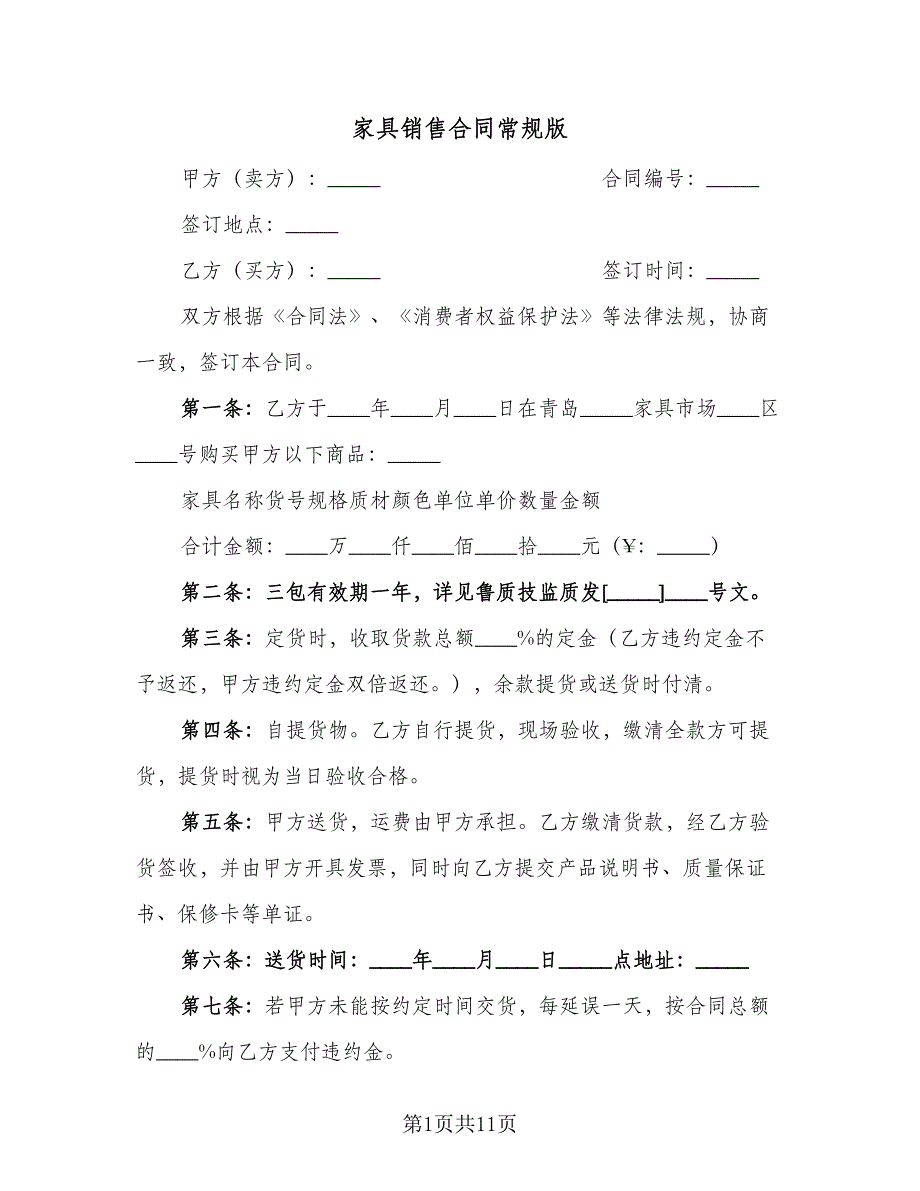 家具销售合同常规版
甲方（卖方）：_____ 合同编号：_____
签订地点：_____
乙方（买方）：_____ 签订时间：_____
双方根据《合同法》、《消费者权益保护法》等法律法规，协商
一致，签订本合同。
第一条：乙方于____年____月____日在青岛_____家具市场____区
____号购买甲方以下商品：_____
家具名称货号规格质材颜色单位单价数量金额
合计金额：____万____仟____佰____拾____元（¥：_____）
第二条：三包有效期一年，详见鲁质技监质发[_____]____号文。
第三条：定货时，收取货款总额____%的定金（乙方违约定金不
予返还，甲方违约定金双倍返还。），余款提货或送货时付清。
第四条：自提货物。乙方自行提货，现场验收，缴清全款方可提
货，提货时视为当日验收合格。
第五条：甲方送货，运费由甲方承担。乙方缴清货款，经乙方验
货签收，并由甲方开具发票，同时向乙方提交产品说明书、质量保证
书、保修卡等单证。
第六条：送货时间：____年____月____日_____点地址：_____
第七条：若甲方未能按约定时间交货，每延误一天，按合同总额
的____%向乙方支付违约金。
第1页共11页